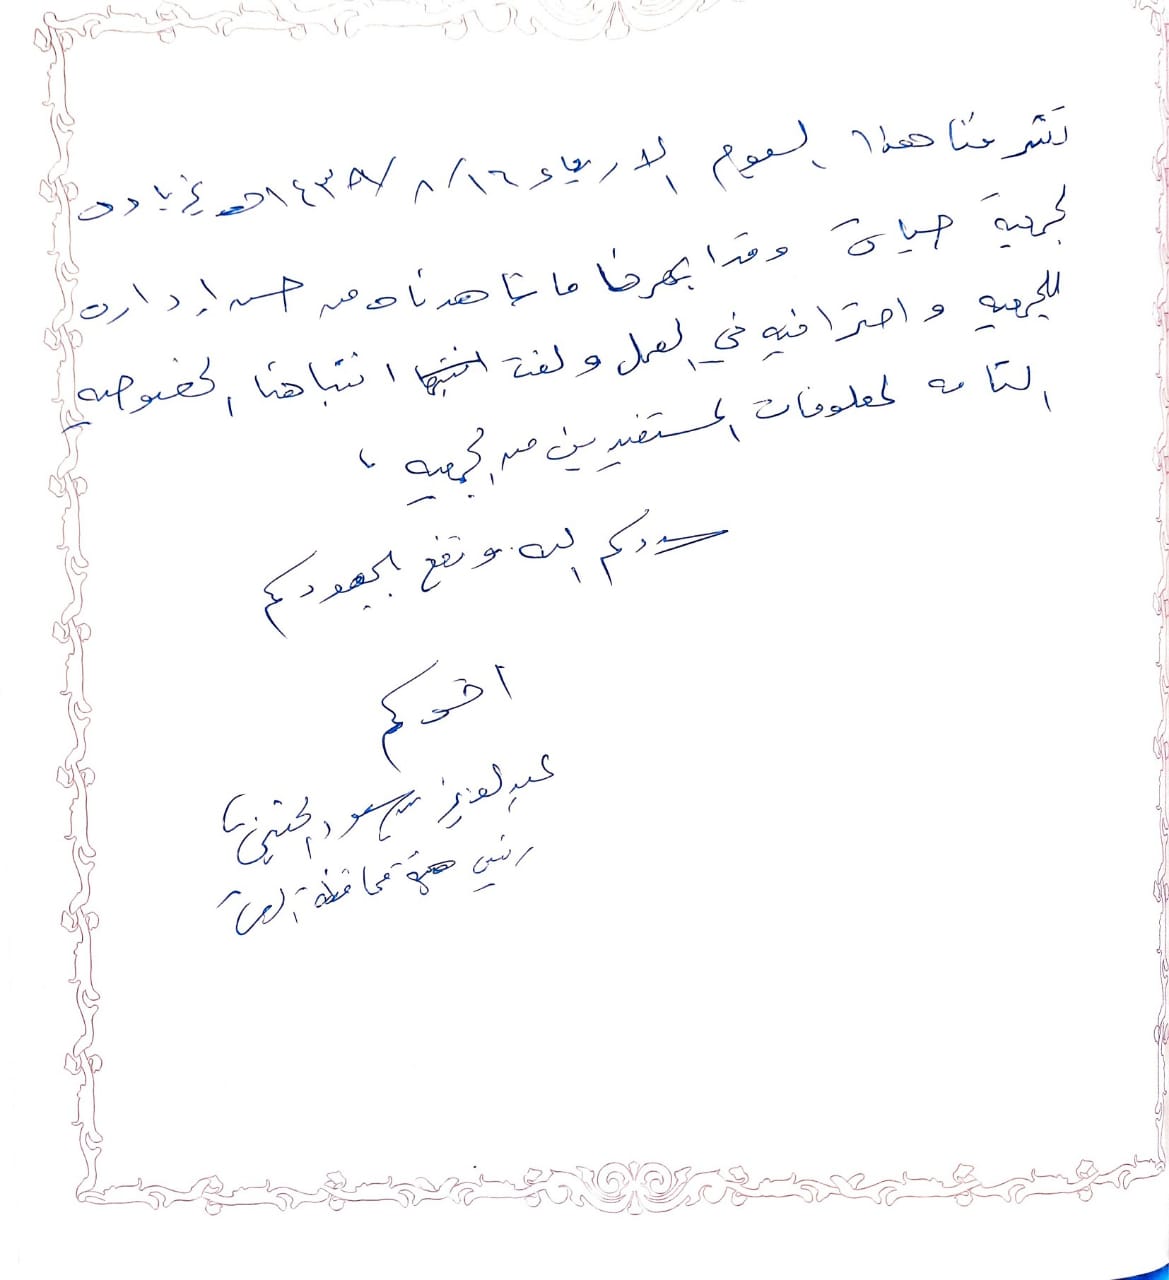 تشرفنا هذا اليوم الاربعاء ١٦/ ٨/ ١٤٣٨هـ بزيارة
لجمعية حياة وقد ابهرنا ما شاهدناه من حسن إدارة
للجمعيه واحترافيه في العمل ولفت انتباهنا الخصوصيه
التامه لمعلومات المستفيدين من الجمعيه ،
سددكم الله ونفع بجهودكم
اخوكم
عبدالعزيز سعود
رئيس هيئة محافظة